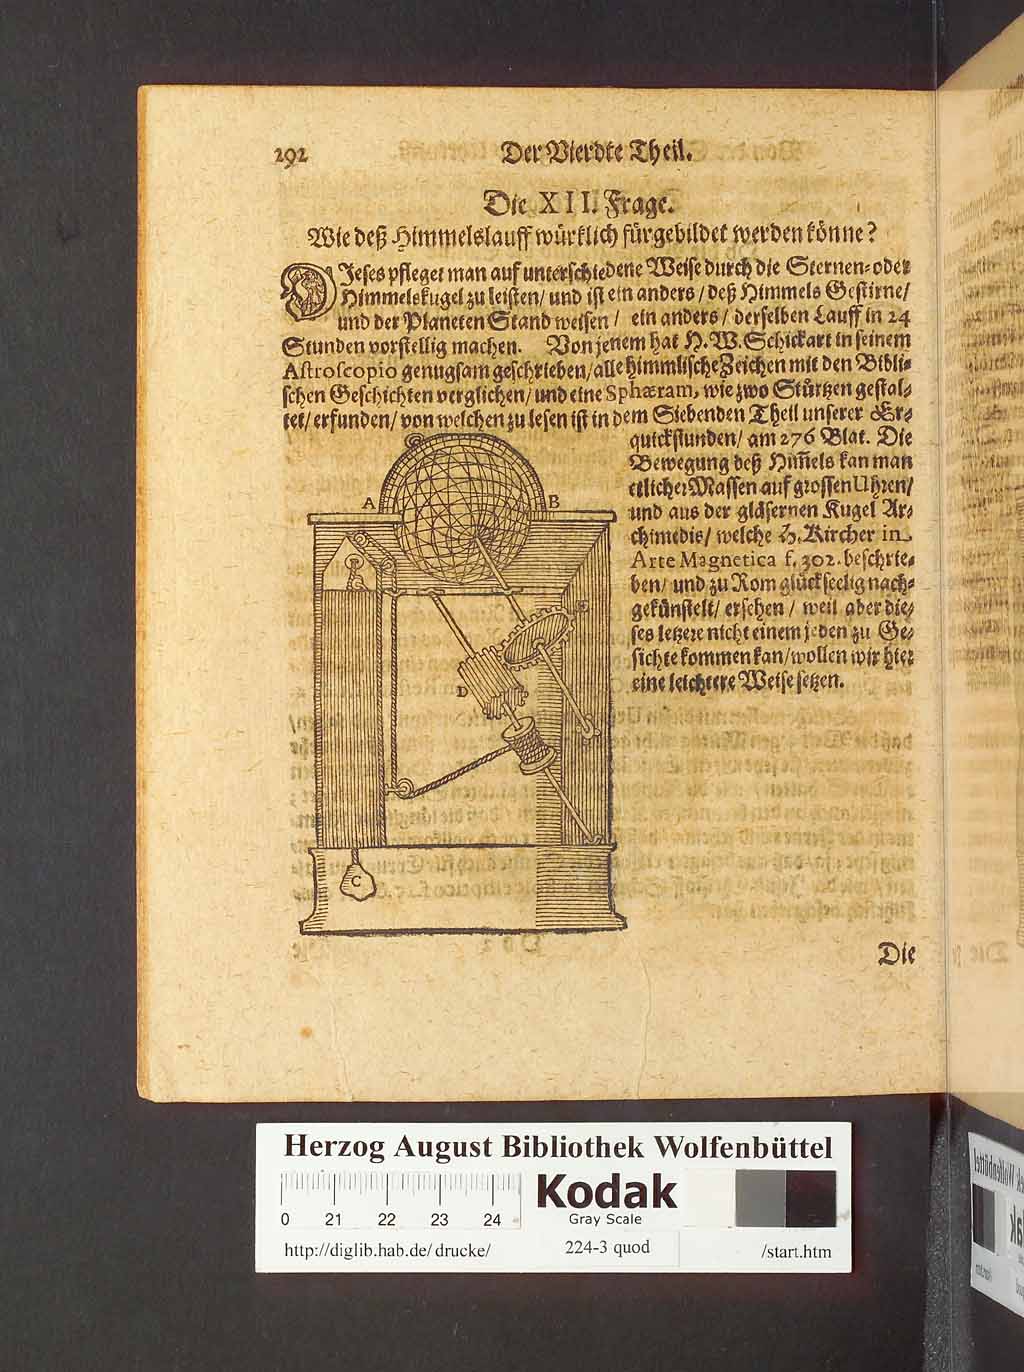 292
Der Vierdte Theil.
Die XII. Frage.
Wie deß Himmelslauff würklich fürgebildet werden könne?
DJeses pfleget man auf unterschiedene Weise durch die Sternen- oder
Himmelskugel zu leisten/ und ist ein anders/ deß Himmels Gestirne/
und der Planeten Stand weisen/ ein anders/ derselben Lauff in 24
Stunden vorstellig machen. Von jenem hat H. W. Schickart in seinem
Astroscopio genugsam geschrieben/ alle himmlische Zeichen mit den Bibli-
schen Geschichten verglichen/ und eine Sphæram, wie zwo Stürtzen gestal-
tet/ erfunden/ von welchen zu lesen ist in dem Siebenden Theil unserer Er-
quickstunden/ am 276 Blat. Die
Bewegung deß Him̃els kan man
etlicher Massen auf grossen Uhren/
und aus der gläsernen Kugel Ar-
chimedis/ welche H. Kircher in
Arte Magnetica f. 302. beschrie-
ben/ und zu Rom glückseelig nach-
gekünstelt/ ersehen/ weil aber die-
ses letzere nicht einem jeden zu Ge-
sichte kommen kan/ wollen wir hier
eine leichtere Weise setzen.
A
B
E
D
C
Die
Herzog August Bibliothek Wolfenbüttel
0 21 22 23 24
Kodak
Gray Scale
http://diglib.hab.de/drucke/ 224-3 quod /start.htm